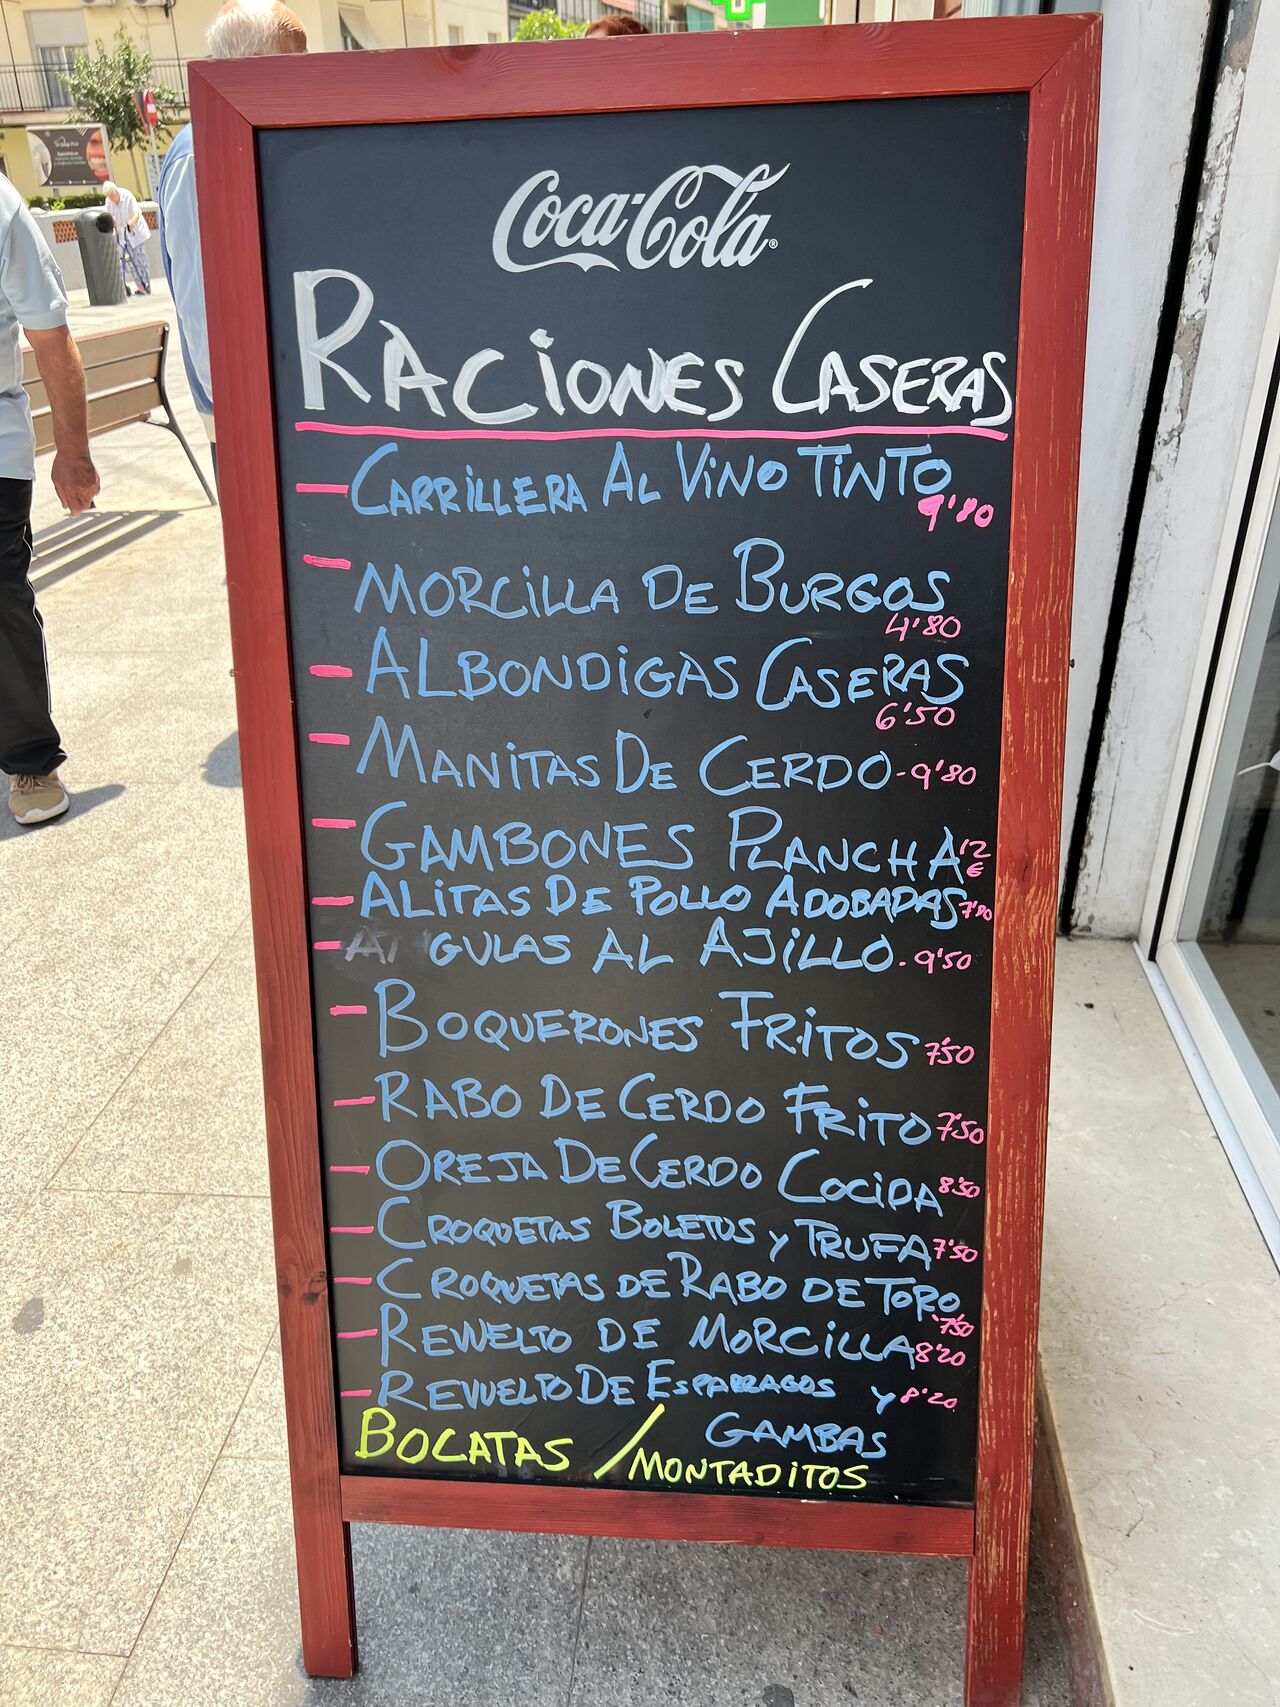 Coca-Cola
RACIONES CASERAS
- CARRILLERA AL VINO TINTO
9'80
- MORCILLA DE BURGOS
4'80
- ALBONDIGAS CASERAS
6'50
- MANITAS DE CERDO - 9'80
- GAMBONES PLANCHA 12 €
- ALITAS DE POLLO ADOBADAS 7'80
- GULAS AL AJILLO - 9'50
- BOQUERONES FRITOS 7'50
- RABO DE CERDO FRITO 7'50
- OREJA DE CERDO COCIDA 8'50
- CROQUETAS BOLETUS Y TRUFA 7'50
- CROQUETAS DE RABO DE TORO
7'50
- REVUELTO DE MORCILLA 8'20
- REVUELTO DE ESPARRAGOS Y 8'20
GAMBAS
BOCATAS / MONTADITOS